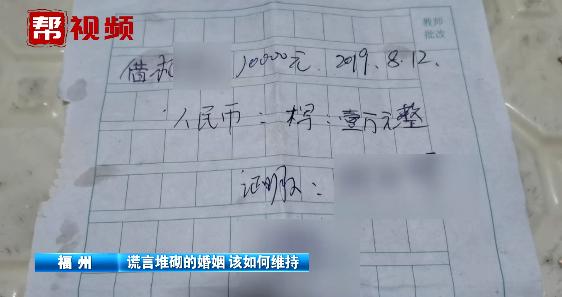 帮视频
教师
批改
借 10000元. 2019. 8. 12.
人民币:大写:壹万元整
证明人:
福州 谎言堆砌的婚姻 该如何维持